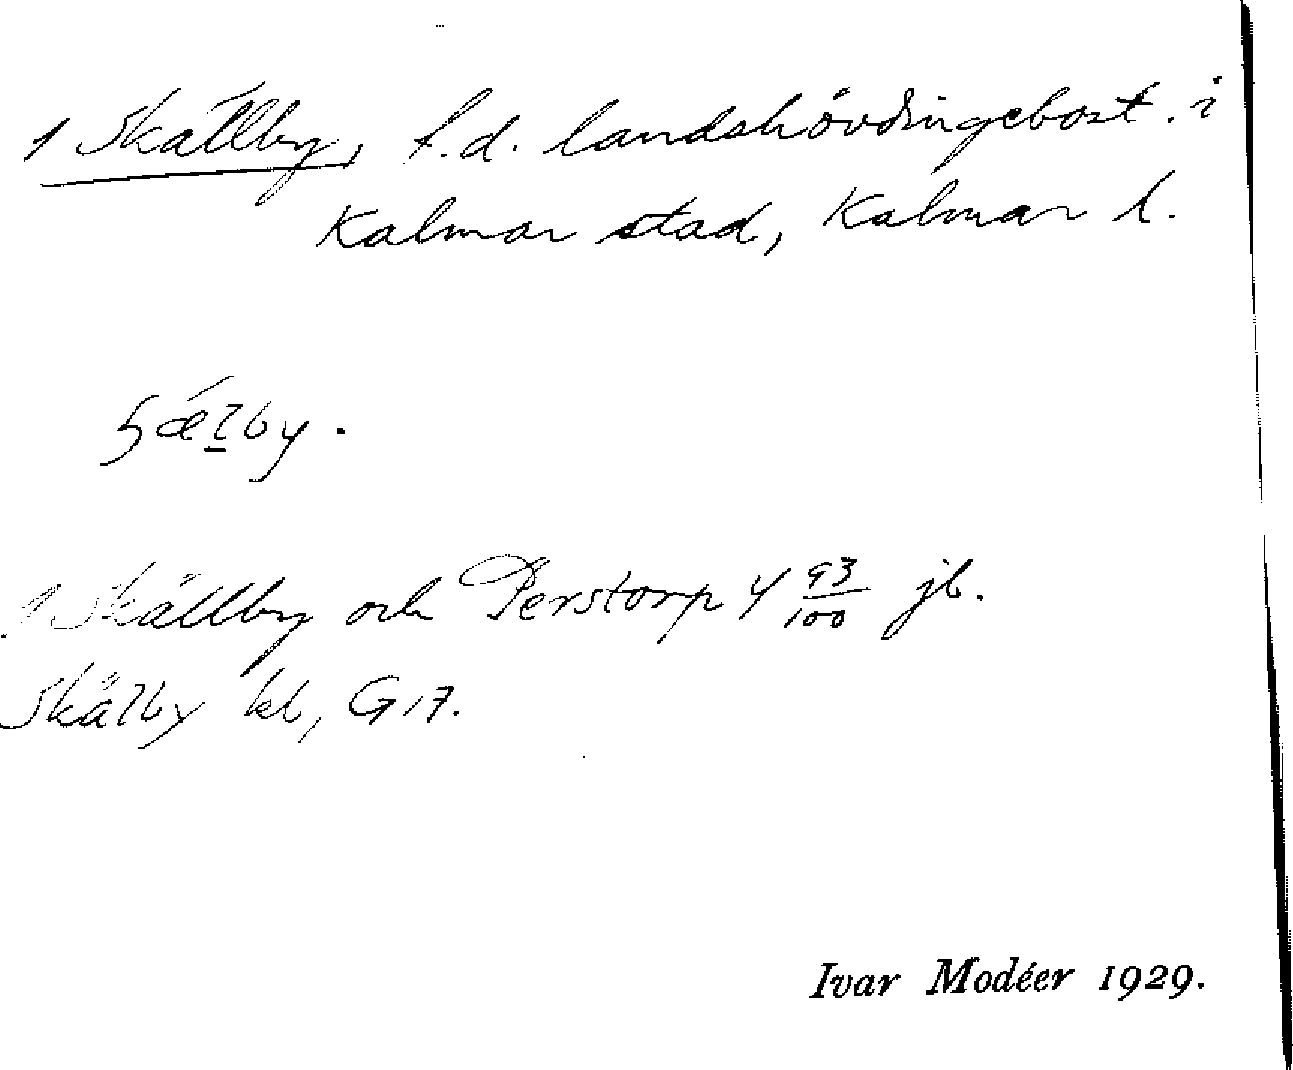 1 Skällby, f.d. landshövdingebost. i
Kalmar stad, Kalmar l.
ʃǽlby.
1 Skällby och Perstorp 4 93/100 jb.
Skälby kl, G17.
Ivar Modéer 1929.